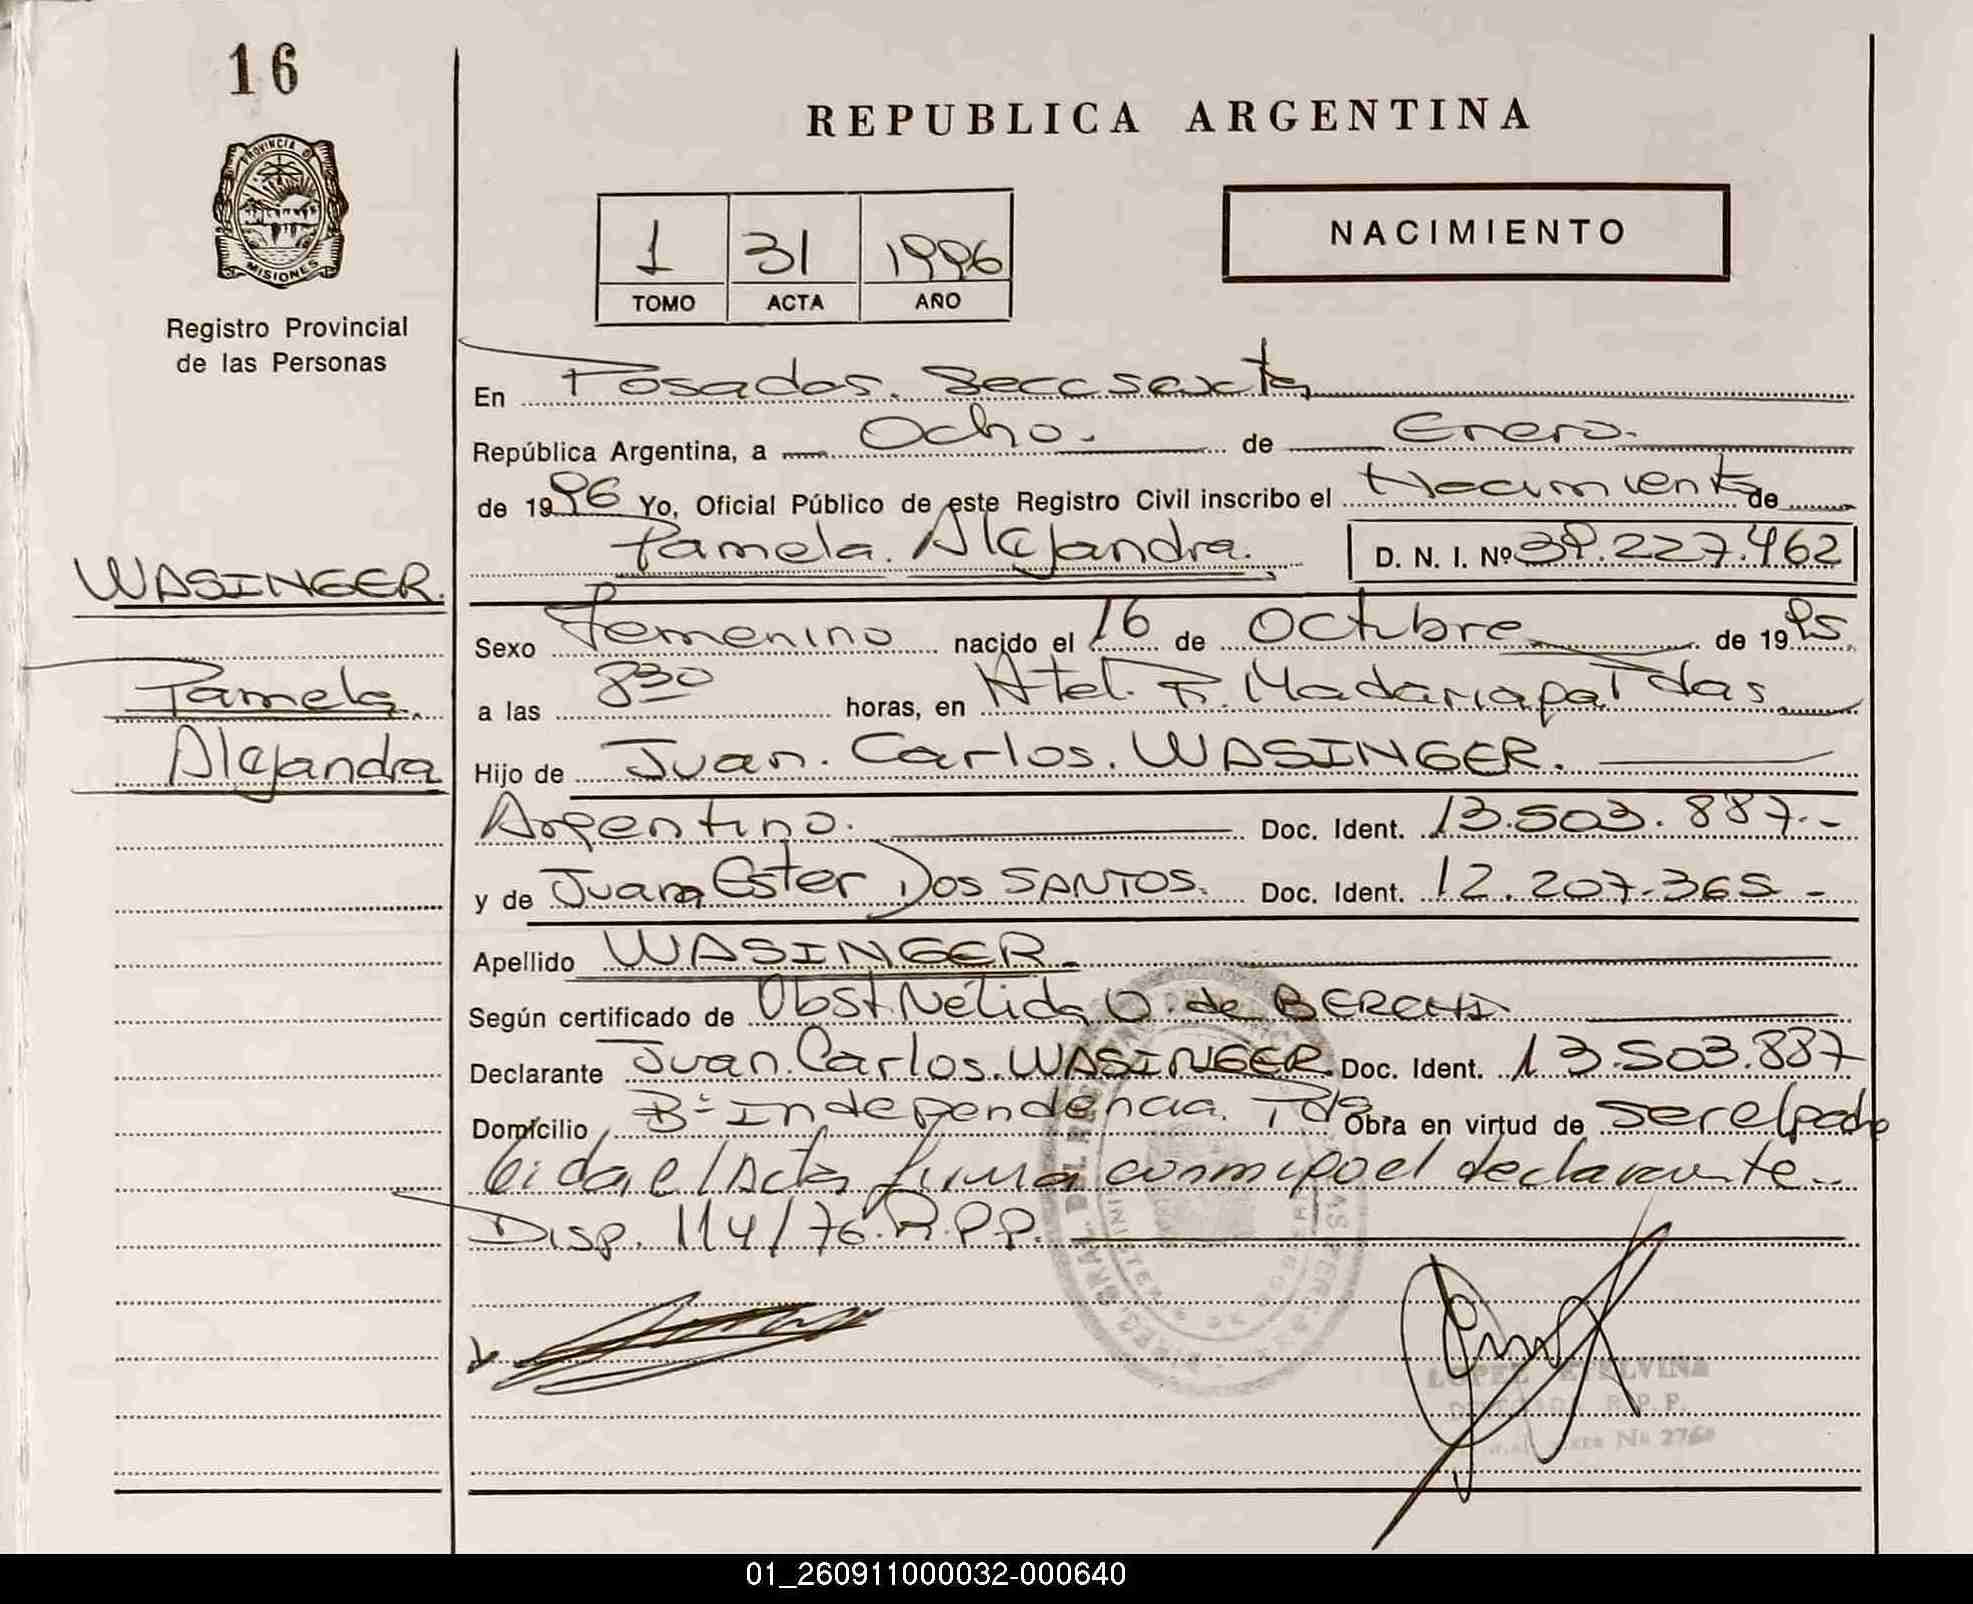 16
PROVINCIA D
MISIONES
Registro Provincial
de las Personas
REPUBLICA ARGENTINA
1 31 1996
TOMO ACTA AÑO
NACIMIENTO
En Posadas. Secc sexta
República Argentina, a Ocho. de Enero.
de 1996 Yo, Oficial Público de este Registro Civil inscribo el Nacimiento de
Pamela. Alejandra. D. N. I. Nº 39.227.462
WASINGER.
Pamela.
Alejandra
Sexo Femenino nacido el 16 de Octubre de 1995.
a las 830 horas, en Htel. R. Madariaga Pdas
Hijo de Juan. Carlos. WASINGER.
Argentino. Doc. Ident. 13.503.887.-
y de Juana Ester Dos SANTOS. Doc. Ident. 12.207.365 -
Apellido WASINGER.
Según certificado de Obst. Nélida O. de BERCHI
Declarante Juan. Carlos. WASINGER. Doc. Ident. 13.503.887
Domicilio Bº Independencia. Pdas Obra en virtud de ser el padre
leida el Acta firma conmigo el declarante.-
Disp. 114/76. R.P.P.
LOPEZ ETELVINA
R. P. P.
01_260911000032-000640